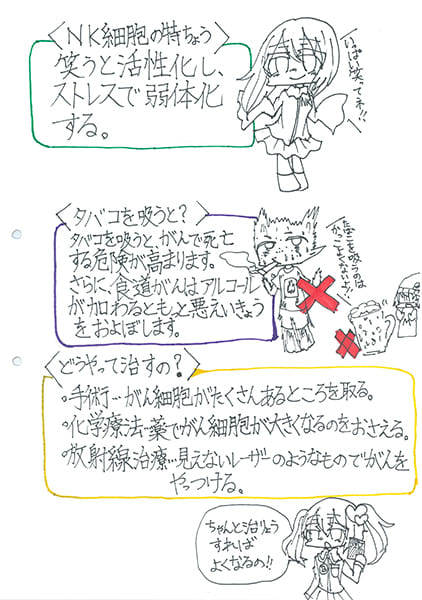 NK細胞の特ちょう
笑うと活性化し、
ストレスで弱体化
する。
いっぱい笑ってネ!!
タバコを吸うと?
タバコを吸うと、がんで死亡
する危険が高まります。
さらに、食道がんはアルコール
が加わるともっと悪えいきょう
をおよぼします。
どうやって治すの?
・手術…がん細胞がたくさんあるところを取る。
・化学療法…薬でがん細胞が大きくなるのをおさえる。
・放射線治療…見えないレーザーのようなものでがんを
やっつける。
ちゃんと治りょう
すれば
よくなるの!!